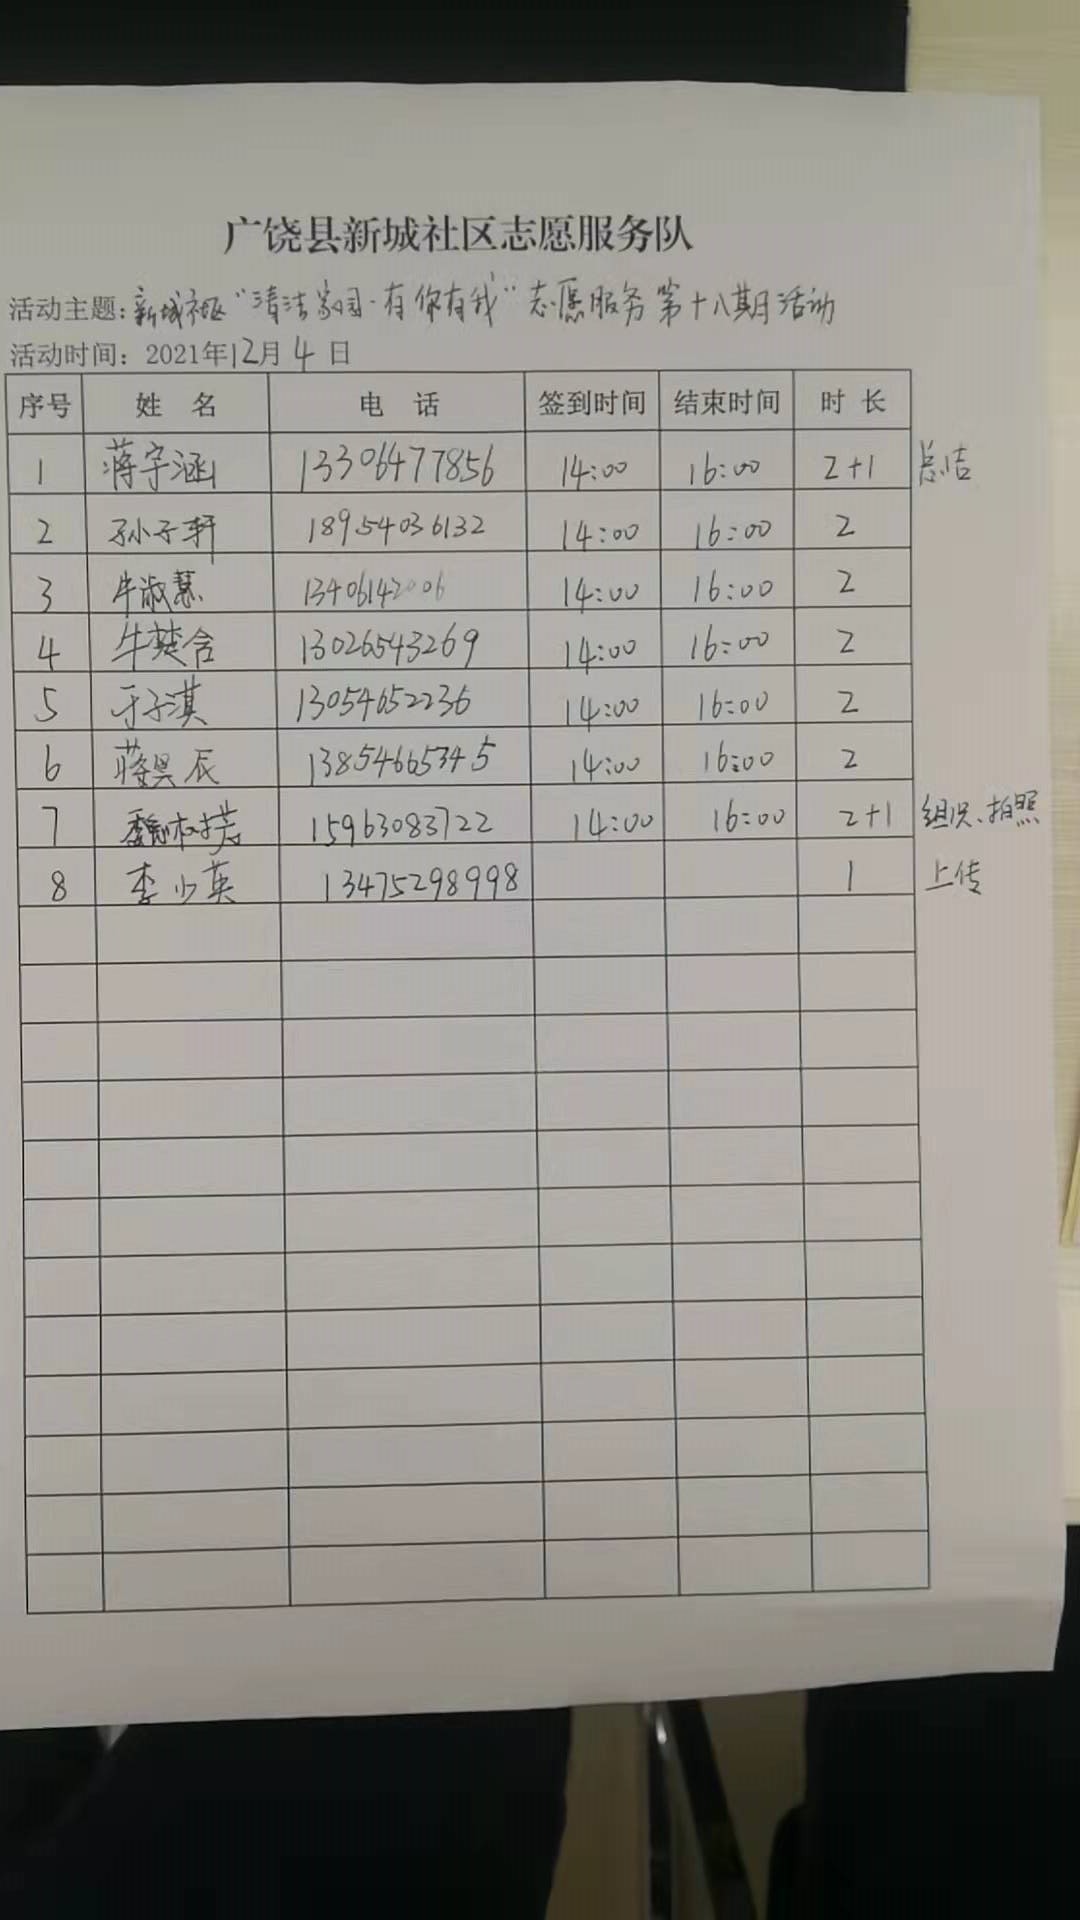 广饶县新城社区志愿服务队
活动主题:新城社区“清洁家园·有你有我”志愿服务第十八期活动
活动时间:2021年12月4日
序号 姓名 电话 签到时间 结束时间 时长
1 蒋宇涵 13306477856 14:00 16:00 2+1 总结
2 孙子轩 18954036132 14:00 16:00 2
3 牛淑慧 13406142006 14:00 16:00 2
4 牛楚含 13026543269 14:00 16:00 2
5 于子淇 13054652236 14:00 16:00 2
6 蒋昊辰 13854665345 14:00 16:00 2
7 15963083722 14:00 16:00 2+1 组织、拍照
8 李少英 13475298998 1 上传